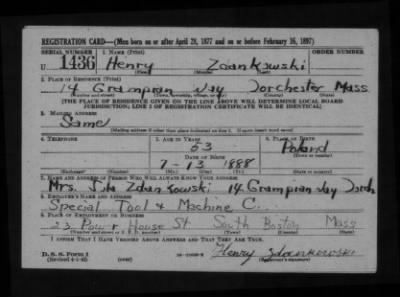 REGISTRATION CARD—(Men born on or after April 28, 1877 and on or before February 16, 1897)
SERIAL NUMBER 1. NAME (Print) ORDER NUMBER
U 1436 Henry Zdankowski
(First) (Middle) (Last)
2. PLACE OF RESIDENCE (Print)
14 Grampian Way Dorchester Mass
(Number and street) (Town, township, village, or city) (County) (State)
[THE PLACE OF RESIDENCE GIVEN ON THE LINE ABOVE WILL DETERMINE LOCAL BOARD
JURISDICTION; LINE 2 OF REGISTRATION CERTIFICATE WILL BE IDENTICAL]
3. MAILING ADDRESS
Same
[Mailing address if other than place indicated on line 2. If same insert word same]
4. TELEPHONE 5. AGE IN YEARS 6. PLACE OF BIRTH
53 Poland
DATE OF BIRTH (Town or county)
7-13 1888
(Exchange) (Number) (Mo.) (Day) (Yr.) (State or country)
7. NAME AND ADDRESS OF PERSON WHO WILL ALWAYS KNOW YOUR ADDRESS
Mrs. Zdankowski 14 Grampian Way Dorch
8. EMPLOYER'S NAME AND ADDRESS
Special Tool & Machine C
9. PLACE OF EMPLOYMENT OR BUSINESS
23 Power House St South Boston Mass
(Number and street or R. F. D. number) (Town) (County) (State)
I AFFIRM THAT I HAVE VERIFIED ABOVE ANSWERS AND THAT THEY ARE TRUE.
D. S. S. Form 1 Henry Zdankowski
(Revised 4-1-42) (over) (Registrant's signature)